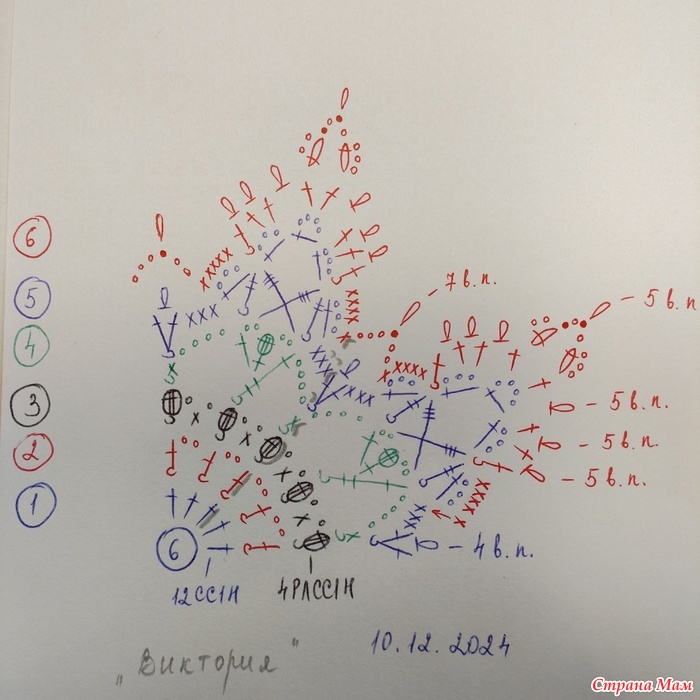 6
5
4
3
2
1
7 в.п.
5 в.п.
5 в.п.
5 в.п.
5 в.п.
4 в.п.
6
12СС1Н
4РЛСС1Н
„Виктория"
10.12.2024
Страна Мам